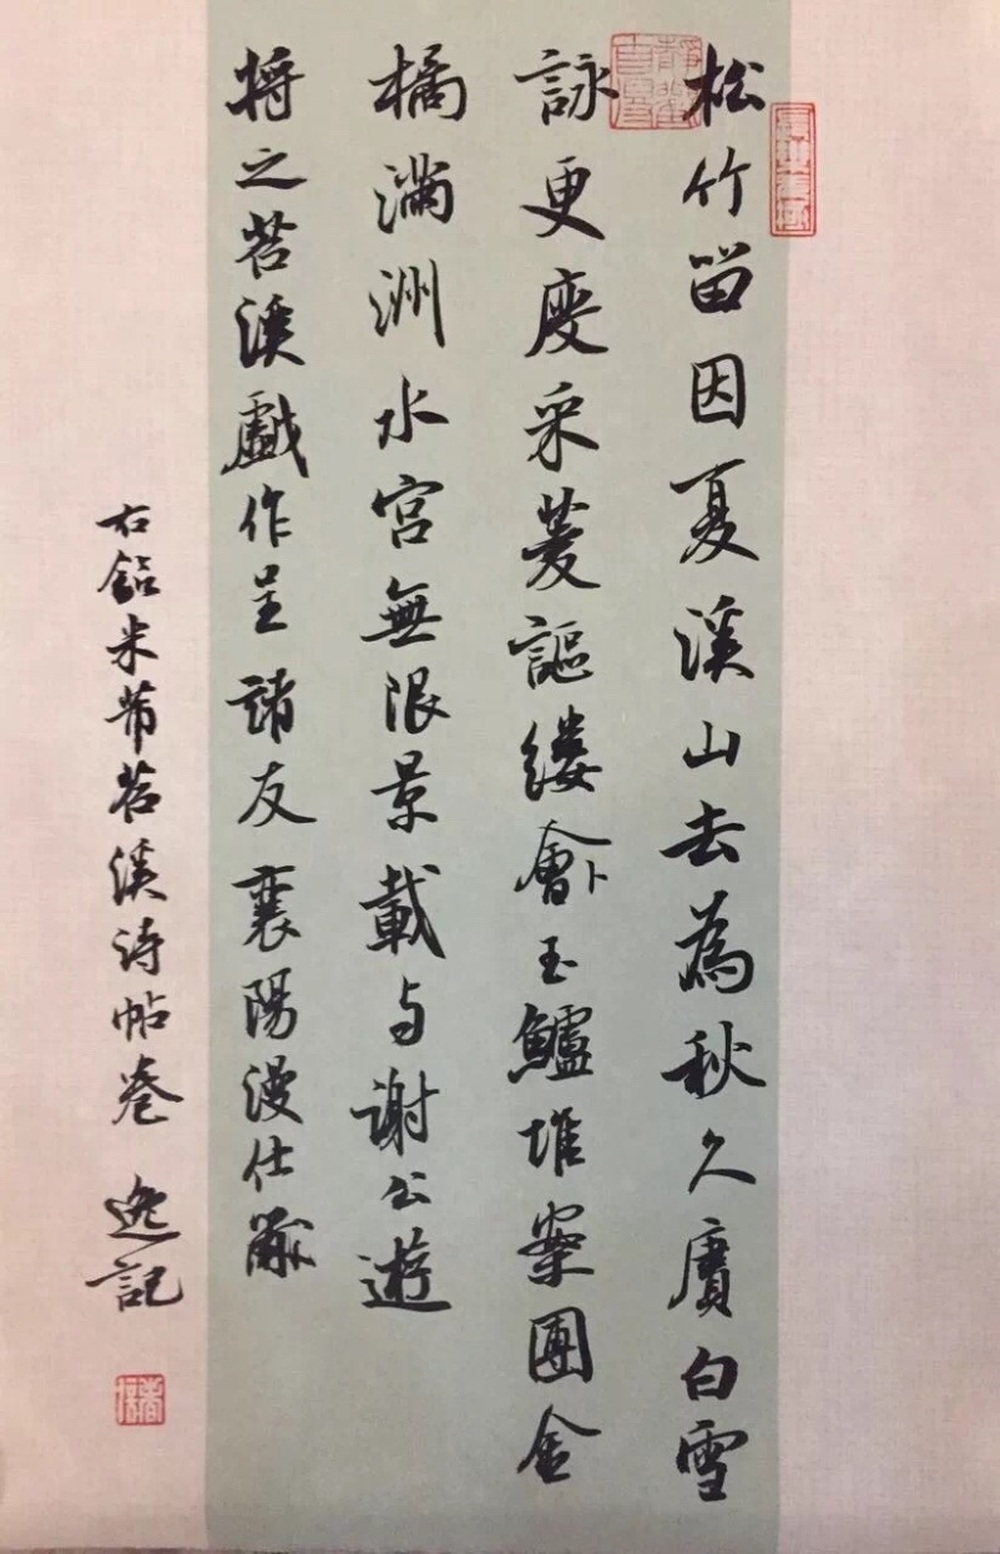 松竹留因夏溪山去為秋久賡白雪
詠更度采菱謳縷鱠玉鱸堆案團金
橘滿洲水宮無限景載与謝公遊
將之苕溪戲作呈諸友襄陽漫仕黻
右臨米芾苕溪诗帖卷 逸記